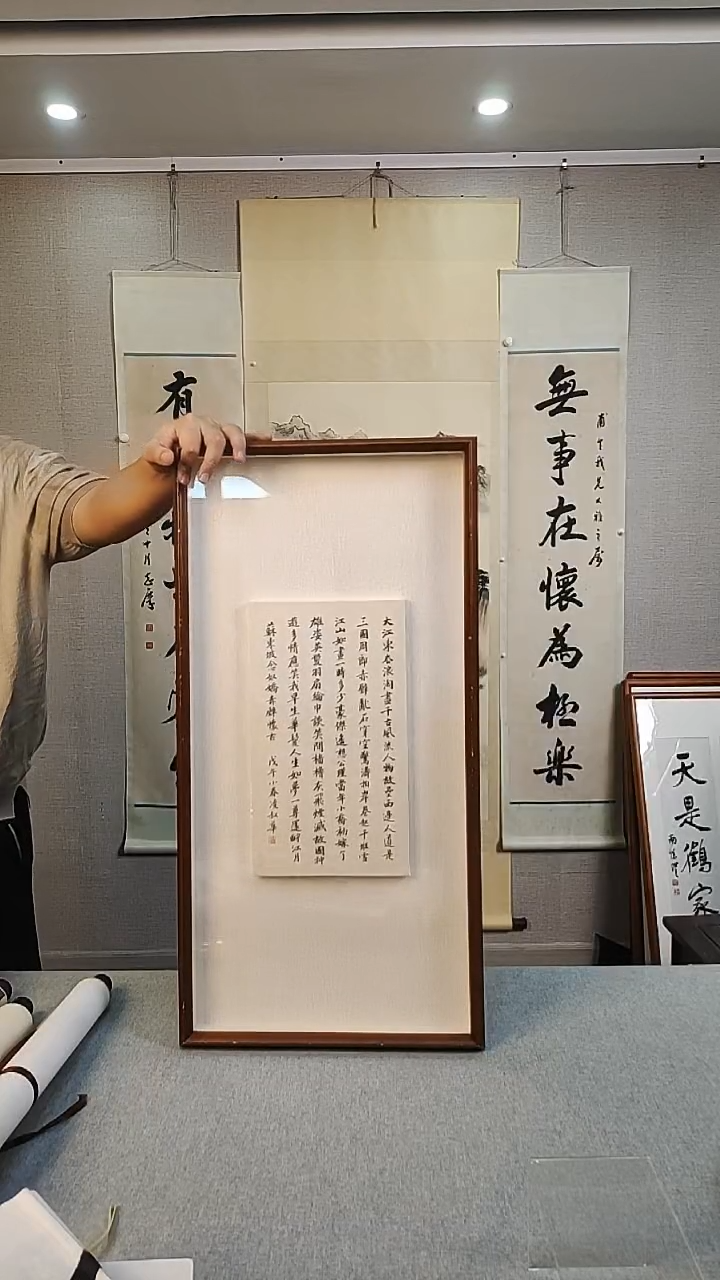 大江東去浪淘盡千古風流人物故壘西邊人道是
三國周郎赤壁亂石穿空驚濤拍岸卷起千堆雪
江山如畫一時多少豪傑遙想公瑾當年小喬初嫁了
雄姿英發羽扇綸巾談笑間檣櫓灰飛煙滅故國神
遊多情應笑我早生華髮人生如夢一尊還酹江月
蘇東坡念奴嬌赤壁懷古 戊午小春
無事在懷為極樂
有
天是鶴家